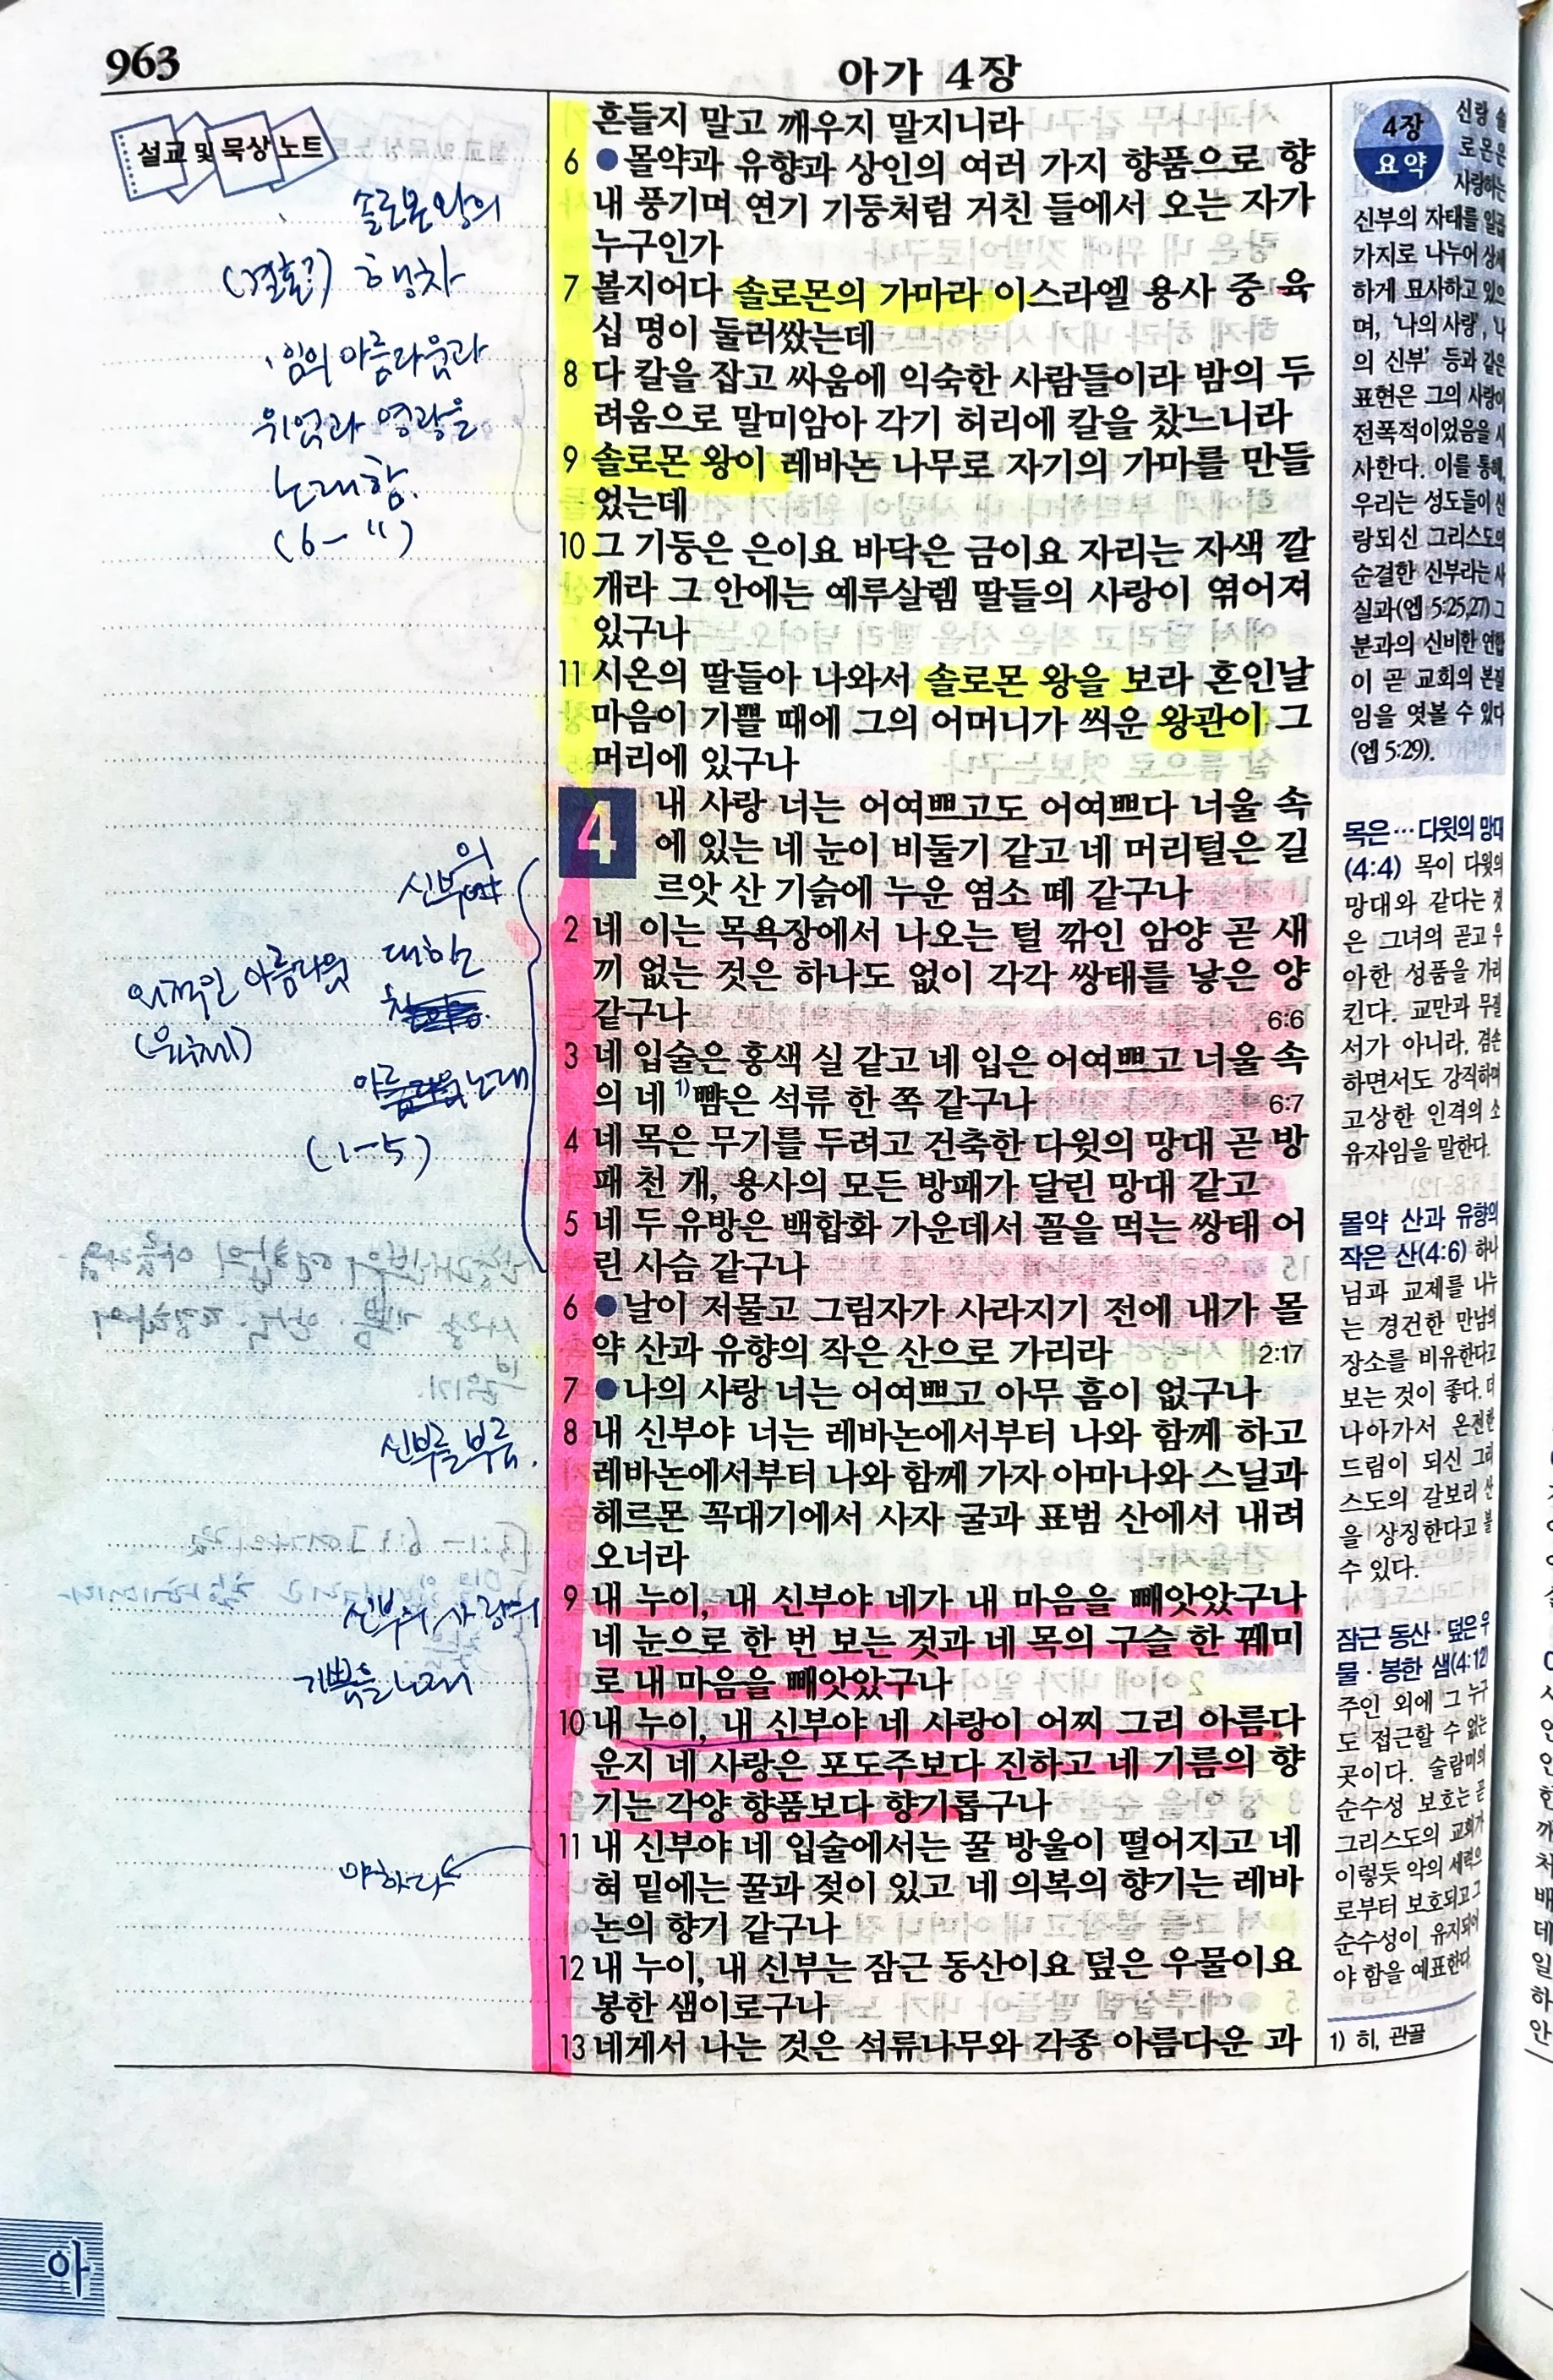 963
아가 4장
설교 및 묵상 노트
솔로몬 왕의
(결혼?) 행차
임의 아름다움과
위엄과 영광을
노래함.
(6-11)
신부의
대한
외적인 아름다움
(육체)
노래
(1-5)
신부를 부름.
신부의 사랑의
기쁨을 노래
야하다
흔들지 말고 깨우지 말지니라
6 ●몰약과 유향과 상인의 여러 가지 향품으로 향
내 풍기며 연기 기둥처럼 거친 들에서 오는 자가
누구인가
7 볼지어다 솔로몬의 가마라 이스라엘 용사 중 육
십 명이 둘러쌌는데
8 다 칼을 잡고 싸움에 익숙한 사람들이라 밤의 두
려움으로 말미암아 각기 허리에 칼을 찼느니라
9 솔로몬 왕이 레바논 나무로 자기의 가마를 만들
었는데
10 그 기둥은 은이요 바닥은 금이요 자리는 자색 깔
개라 그 안에는 예루살렘 딸들의 사랑이 엮어져
있구나
11 시온의 딸들아 나와서 솔로몬 왕을 보라 혼인날
마음이 기쁠 때에 그의 어머니가 씌운 왕관이 그
머리에 있구나
4 내 사랑 너는 어여쁘고도 어여쁘다 너울 속
에 있는 네 눈이 비둘기 같고 네 머리털은 길
르앗 산 기슭에 누운 염소 떼 같구나
2 네 이는 목욕장에서 나오는 털 깎인 암양 곧 새
끼 없는 것은 하나도 없이 각각 쌍태를 낳은 양
같구나 6:6
3 네 입술은 홍색 실 같고 네 입은 어여쁘고 너울 속
의 네 1)뺨은 석류 한 쪽 같구나 6:7
4 네 목은 무기를 두려고 건축한 다윗의 망대 곧 방
패 천 개, 용사의 모든 방패가 달린 망대 같고
5 네 두 유방은 백합화 가운데서 꼴을 먹는 쌍태 어
린 사슴 같구나
6 ●날이 저물고 그림자가 사라지기 전에 내가 몰
약 산과 유향의 작은 산으로 가리라 2:17
7 ●나의 사랑 너는 어여쁘고 아무 흠이 없구나
8 내 신부야 너는 레바논에서부터 나와 함께 하고
레바논에서부터 나와 함께 가자 아마나와 스닐과
헤르몬 꼭대기에서 사자 굴과 표범 산에서 내려
오너라
9 내 누이, 내 신부야 네가 내 마음을 빼앗았구나
네 눈으로 한 번 보는 것과 네 목의 구슬 한 꿰미
로 내 마음을 빼앗았구나
10 내 누이, 내 신부야 네 사랑이 어찌 그리 아름다
운지 네 사랑은 포도주보다 진하고 네 기름의 향
기는 각양 향품보다 향기롭구나
11 내 신부야 네 입술에서는 꿀 방울이 떨어지고 네
혀 밑에는 꿀과 젖이 있고 네 의복의 향기는 레바
논의 향기 같구나
12 내 누이, 내 신부는 잠근 동산이요 덮은 우물이요
봉한 샘이로구나
13 네게서 나는 것은 석류나무와 각종 아름다운 과
4장
요약
신랑 솔
로몬은
사랑하는
신부의 자태를 일곱
가지로 나누어 상세
하게 묘사하고 있으
며, '나의 사랑', '나
의 신부' 등과 같은
표현은 그의 사랑이
전폭적이었음을 시
사한다. 이를 통해,
우리는 성도들이 신
랑되신 그리스도의
순결한 신부라는 사
실과(엡 5:25,27) 그
분과의 신비한 연합
이 곧 교회의 본질
임을 엿볼 수 있다
(엡 5:29).
목은…다윗의 망대
(4:4) 목이 다윗의
망대와 같다는 것
은 그녀의 곧고 우
아한 성품을 가리
킨다. 교만과 무질
서가 아니라, 겸손
하면서도 강직하며
고상한 인격의 소
유자임을 말한다.
몰약 산과 유향의
작은 산(4:6) 하나
님과 교제를 나누
는 경건한 만남의
장소를 비유한다고
보는 것이 좋다. 더
나아가서 온전한
드림이 되신 그리
스도의 갈보리 산
을 상징한다고 볼
수 있다.
잠근 동산·덮은 우
물·봉한 샘(4:12)
주인 외에 그 누구
도 접근할 수 없는
곳이다. 술람미의
순수성 보호는 곧
그리스도의 교회가
이렇듯 악의 세력으
로부터 보호되고 그
순수성이 유지되어
야 함을 예표한다.
1) 히, 관골
아